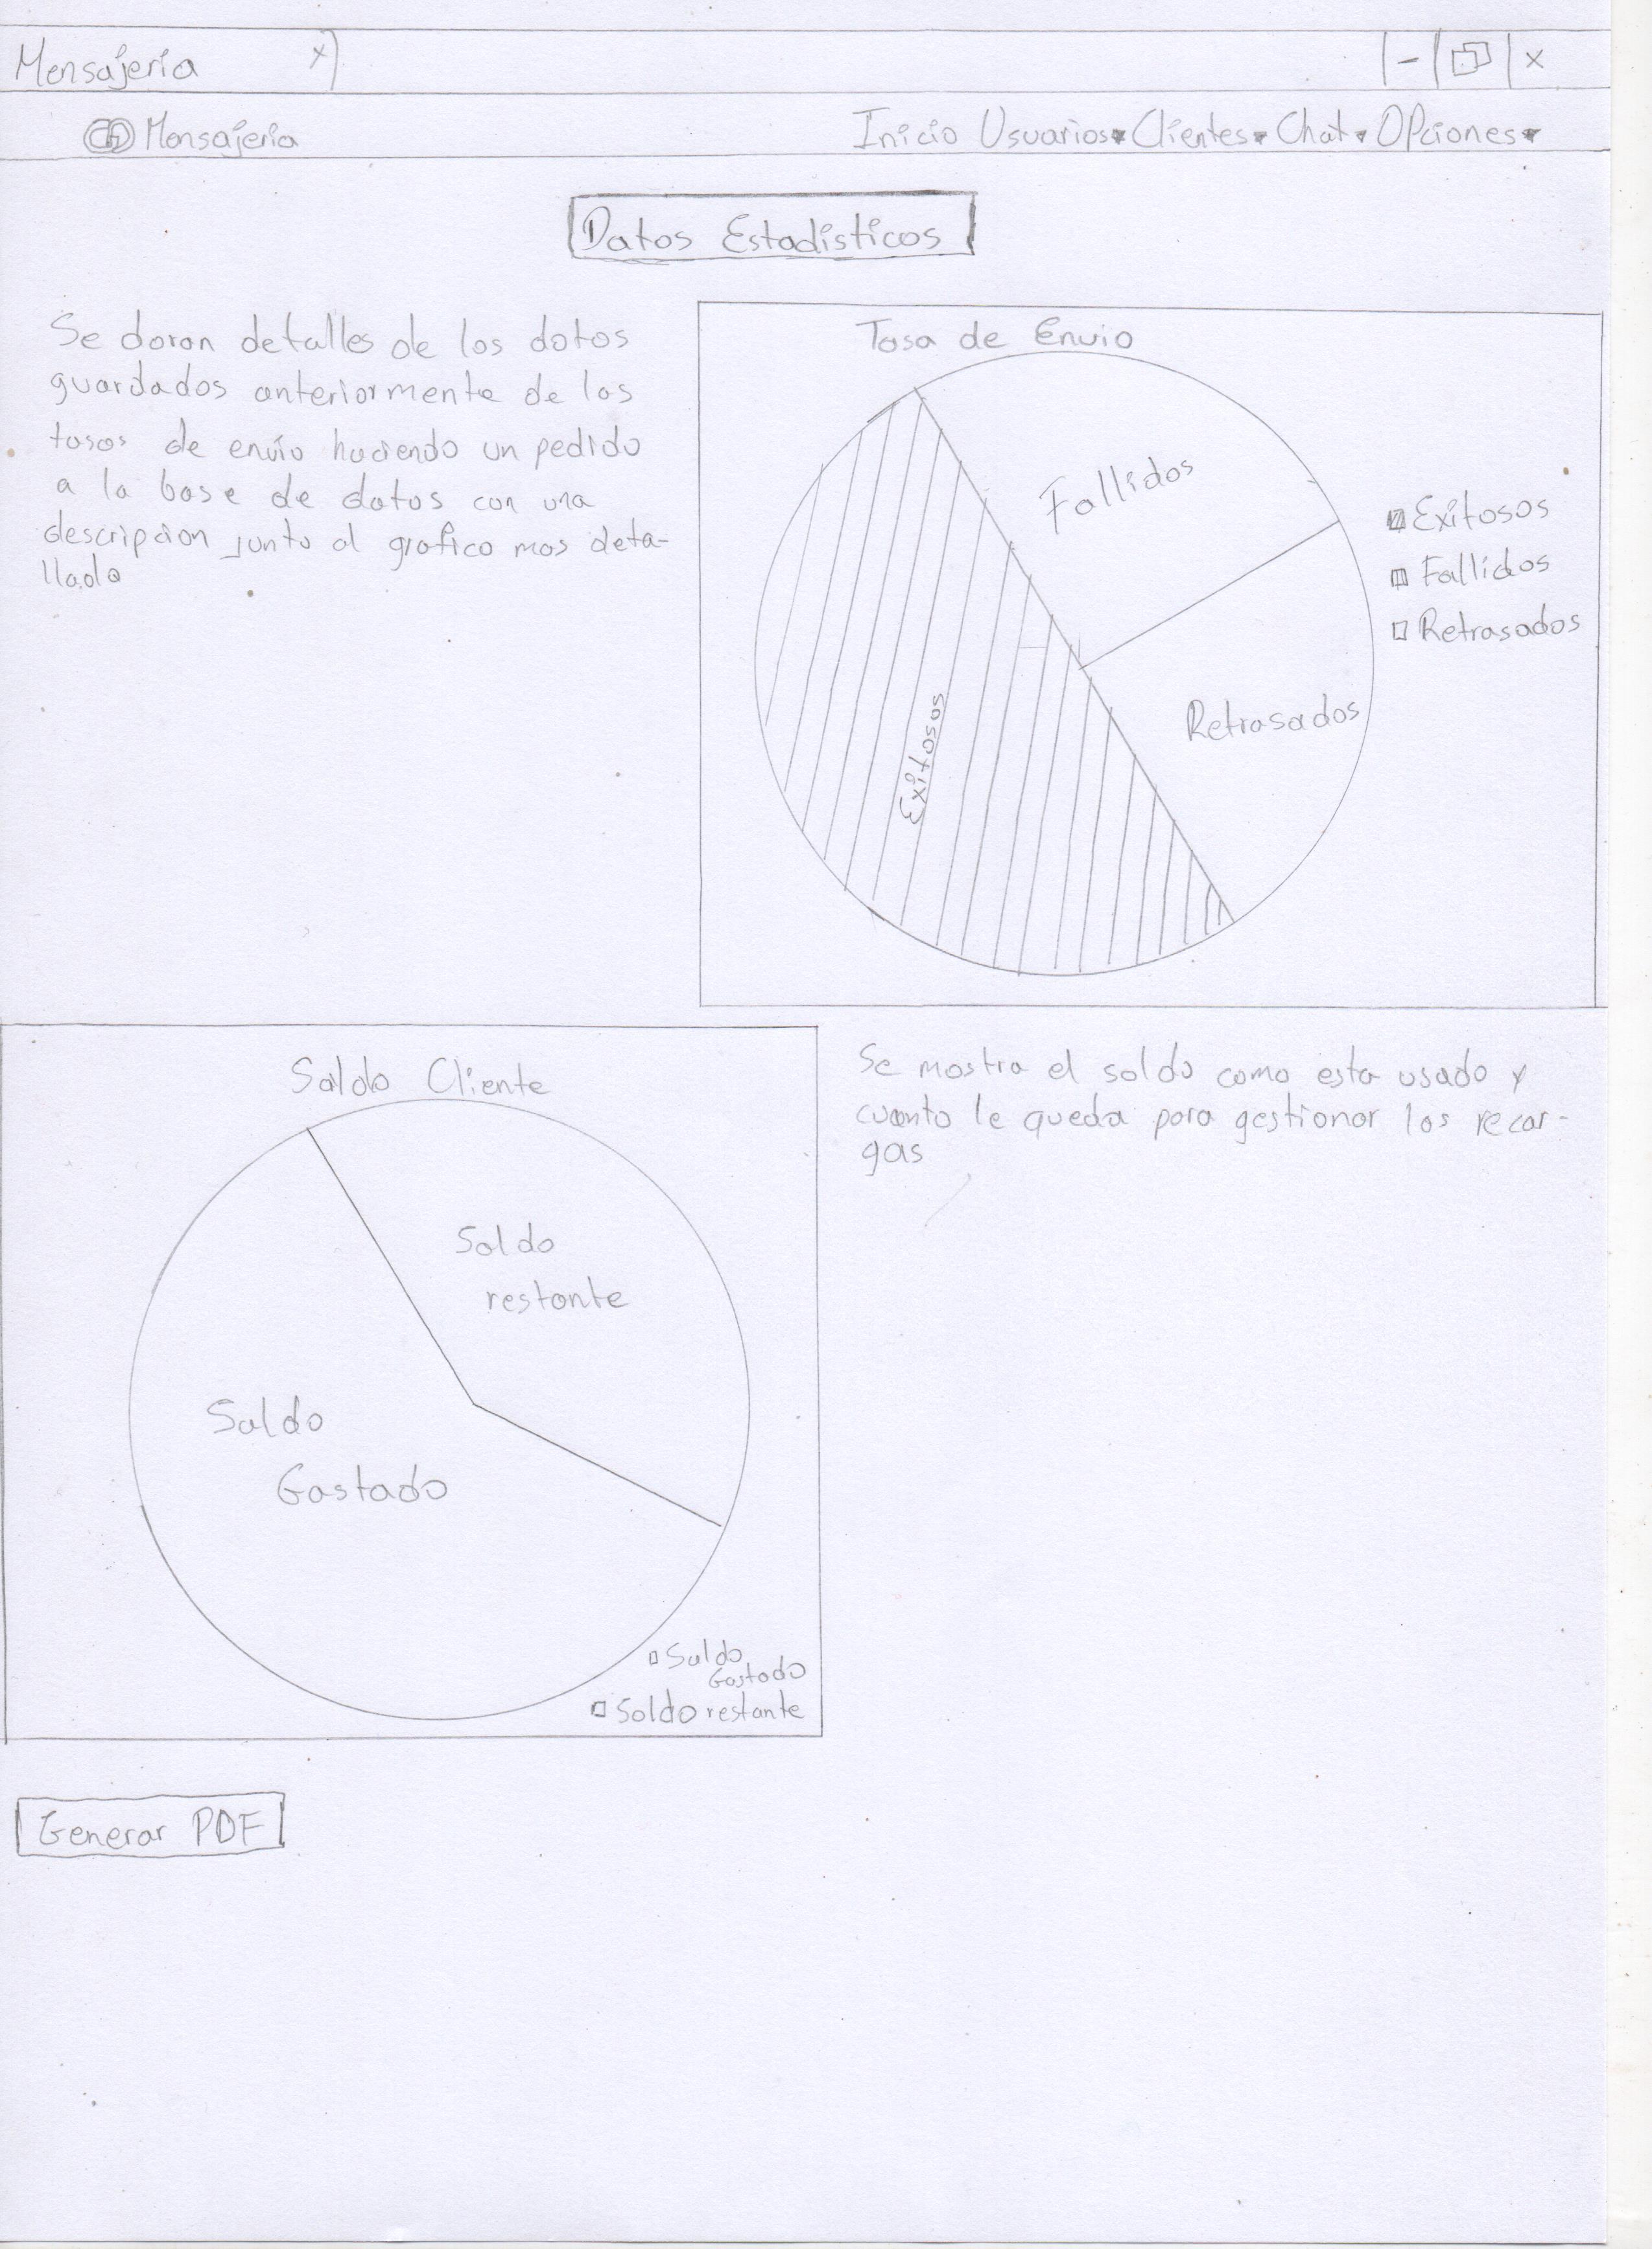 Mensajería x
- x
Mensajería
Inicio Usuarios Clientes Chat Opciones
Datos Estadísticos
Se daran detalles de los datos
guardados anteriormente de las
tasas de envío haciendo un pedido
a la base de datos con una
descripcion junto al grafico mas deta-
llada
Tasa de Envio
Fallidos
Retrasados
Exitosos
Exitosos
Fallidos
Retrasados
Saldo Cliente
Saldo
restante
Saldo
Gastado
Saldo
Gastado
Saldo restante
Se mostra el saldo como esta usado y
cuanto le queda para gestionar las recar-
gas
Generar PDF